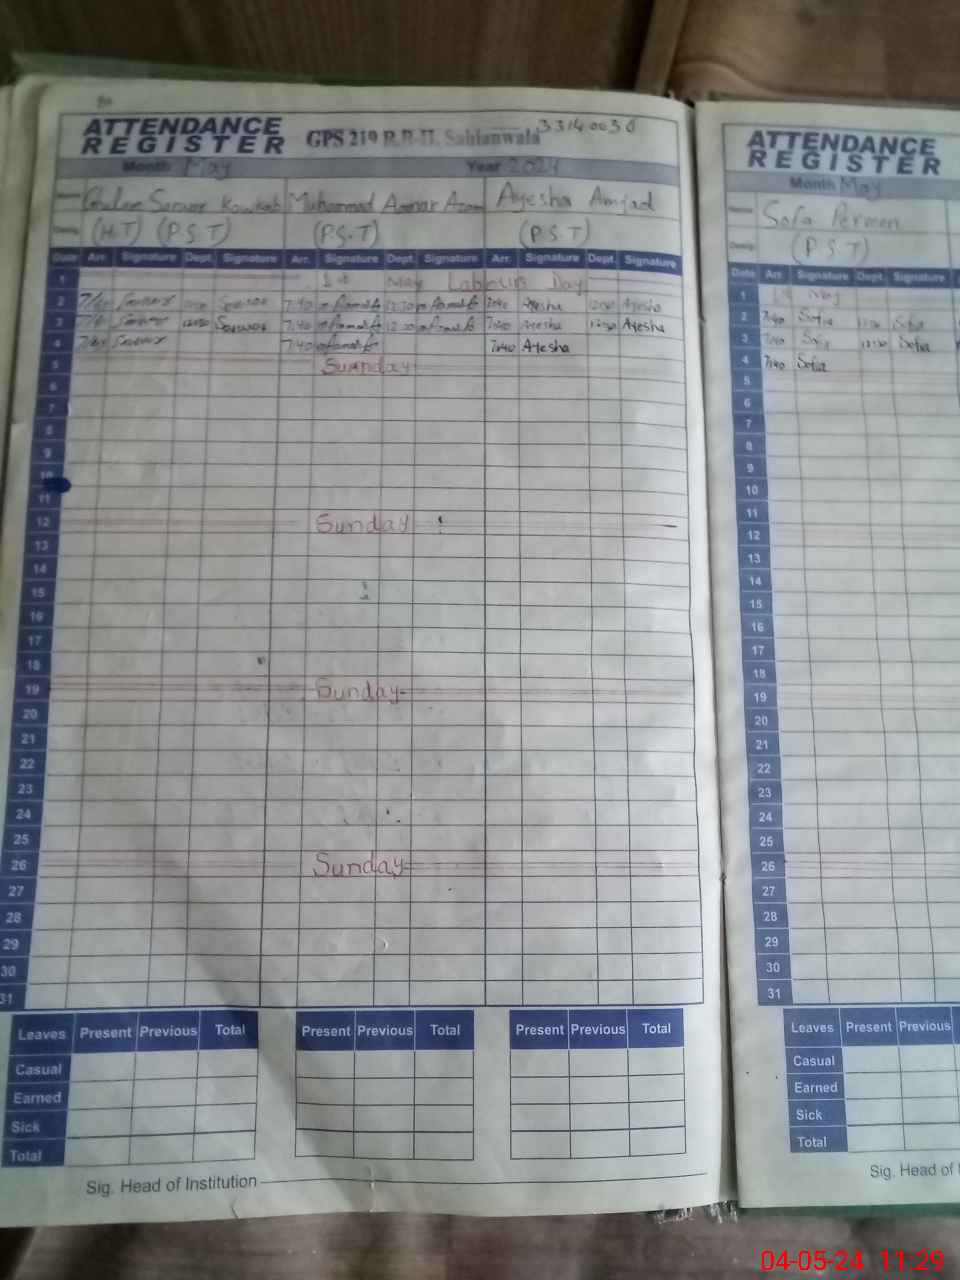 ATTENDANCE REGISTER GPS 219 R.B-II. Sabianwala 33140030
Month May Year 2024
Sarwar Muhammad Ammar Azam Ayesha Amjad
(H.T) (P.S.T) (P.S.T) (P.S.T)
Date Arr. Signature Dept. Signature Arr. Signature Dept. Signature Arr. Signature Dept. Signature
1 1st May Labours Day
2 7:40 12:30 7:40 Ayesha Ayesha
3 7:40 7:40 Ayesha Ayesha
4 7:40 7:40 Ayesha
5 Sunday
6
7
8
9
10
11
12 Sunday
13
14
15
16
17
18
19 Sunday
20
21
22
23
24
25
26 Sunday
27
28
29
30
31
Leaves Present Previous Total Present Previous Total Present Previous Total
Casual
Earned
Sick
Total
Sig. Head of Institution
ATTENDANCE REGISTER
Month May
Sofia
(P.S.T)
Date Arr. Signature Dept. Signature
1 1st May
2 7:40 Sofia Sofia
3 7:40 Sofia 12:30 Sofia
4 7:40 Sofia
5
6
7
8
9
10
11
12
13
14
15
16
17
18
19
20
21
22
23
24
25
26
27
28
29
30
31
Leaves Present Previous
Casual
Earned
Sick
Total
Sig. Head of
04-05-24 11:29